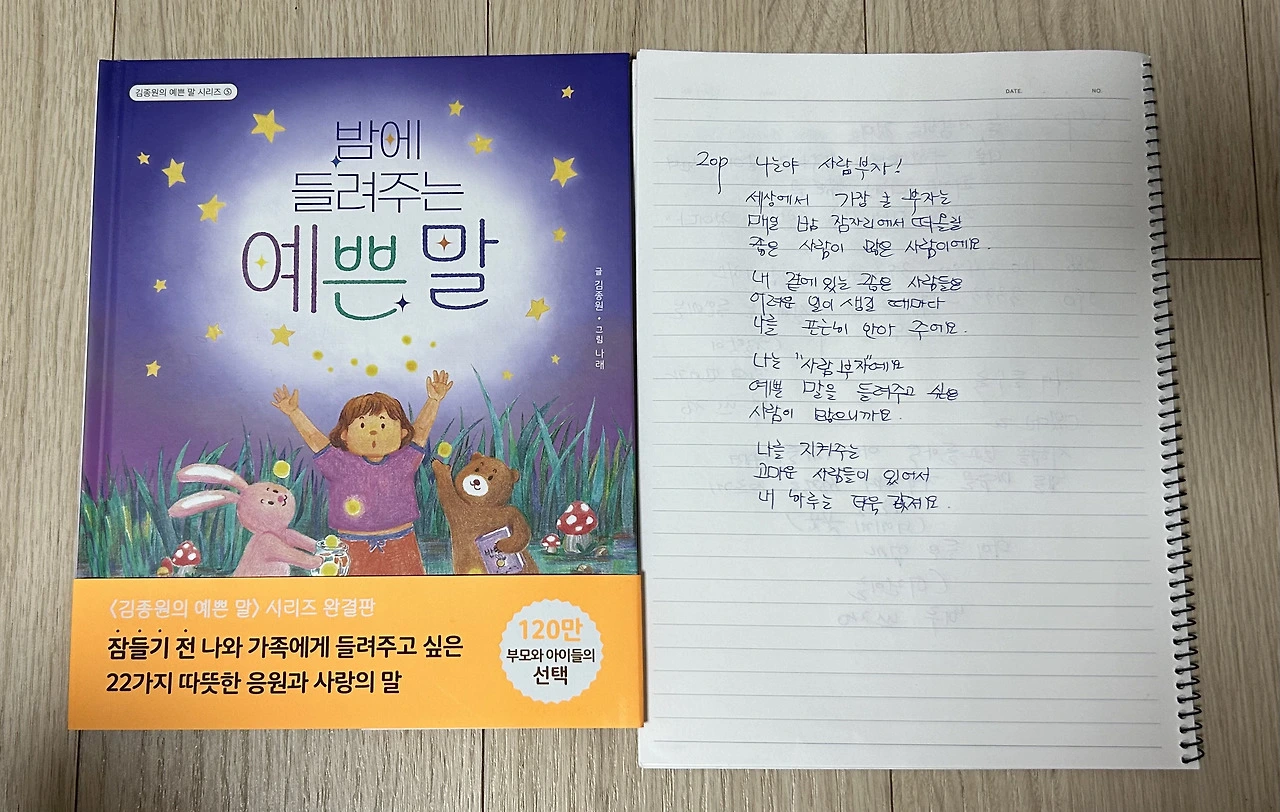 김종원의 예쁜 말 시리즈 ⑤
밤에
들려주는
예쁜 말
글 김종원 • 그림 나래
〈김종원의 예쁜 말〉 시리즈 완결판
잠들기 전 나와 가족에게 들려주고 싶은
22가지 따뜻한 응원과 사랑의 말
120만
부모와 아이들의
선택
DATE. NO.
20p 나는야 사람부자!
세상에서 가장 큰 부자는
매일 밤 잠자리에서 떠올릴
좋은 사람이 많은 사람이에요.
내 곁에 있는 좋은 사람들은
어려운 일이 생길 때마다
나를 포근히 안아 주어요.
나는 "사람부자"예요
예쁜 말을 들려주고 싶은
사람이 많으니까요.
나를 지켜주는
고마운 사람들이 있어서
내 하루는 더욱 값져요.